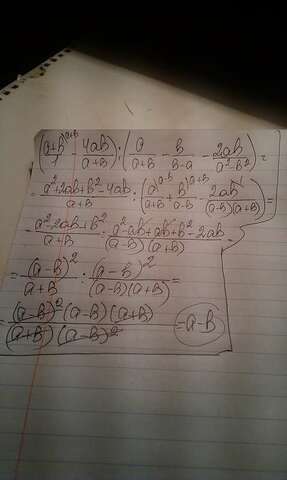 ((a+b)^(a+b)/1 - 4ab/(a+b)) : (a/(a+b) - b/(b-a) - 2ab/(a²-b²)) =
= (a²+2ab+b²-4ab)/(a+b) : (a^(a-b)/(a+b) + b^(a+b)/(a-b) - 2ab^(1)/((a-b)(a+b))) =
= (a²-2ab+b²)/(a+b) : (a²-ab+ab+b²-2ab)/((a-b)(a+b)) =
= (a-b)²/(a+b) : (a-b)²/((a-b)(a+b)) =
= (a-b)²(a-b)(a+b)/((a+b)(a-b)²) = a-b